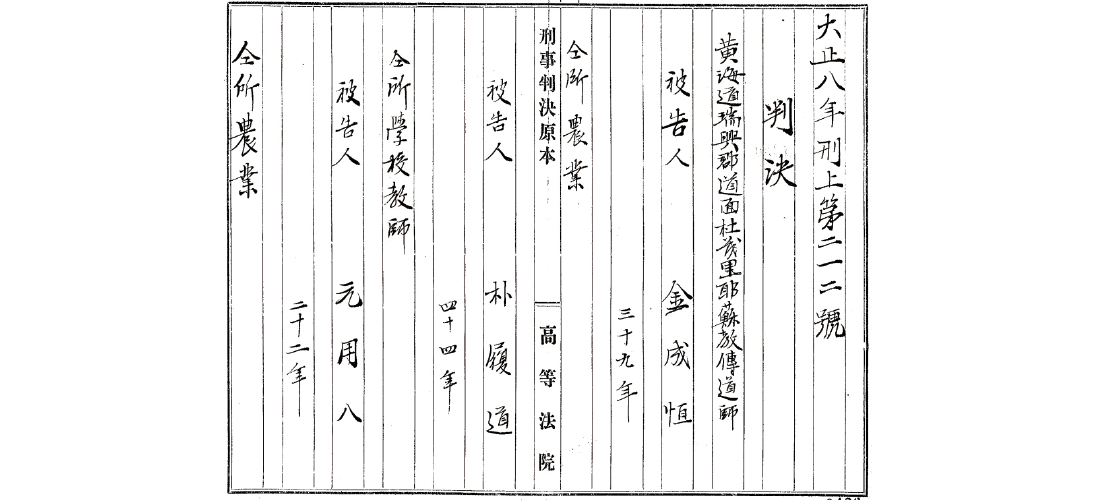 大正八年刑上第二一二號
判決
黄海道瑞興郡道面杜茂里耶蘇教傳道師
被告人 金成恒
三十九年
仝所農業
刑事判決原本 高等法院
被告人 朴履道
四十四年
仝所學校教師
被告人 元用八
二十二年
仝所農業